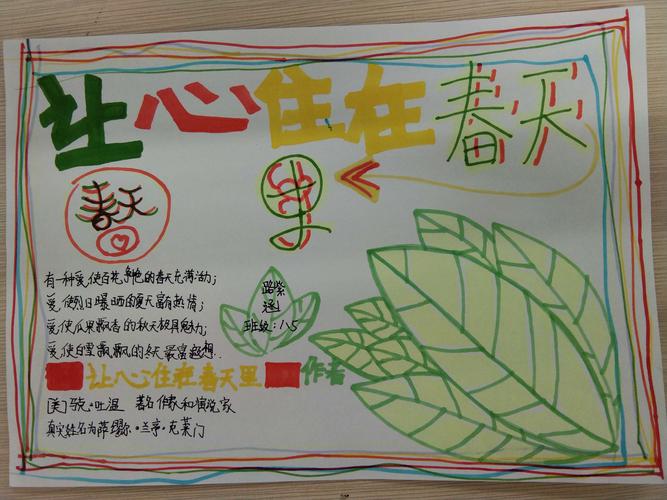 让心住在春天
里
春天
有一种爱,使百花争艳的春天充满活力;
爱,使烈日曝晒的夏天富有热情;
爱,使瓜果飘香的秋天极具魅力;
爱,使白雪飘飘的冬天最富遐想.
路紫
涵
班级:八5
让心住在春天里 作者
[美]马克·吐温 著名作家和演说家
真实姓名为萨缪尔·兰亭·克莱门